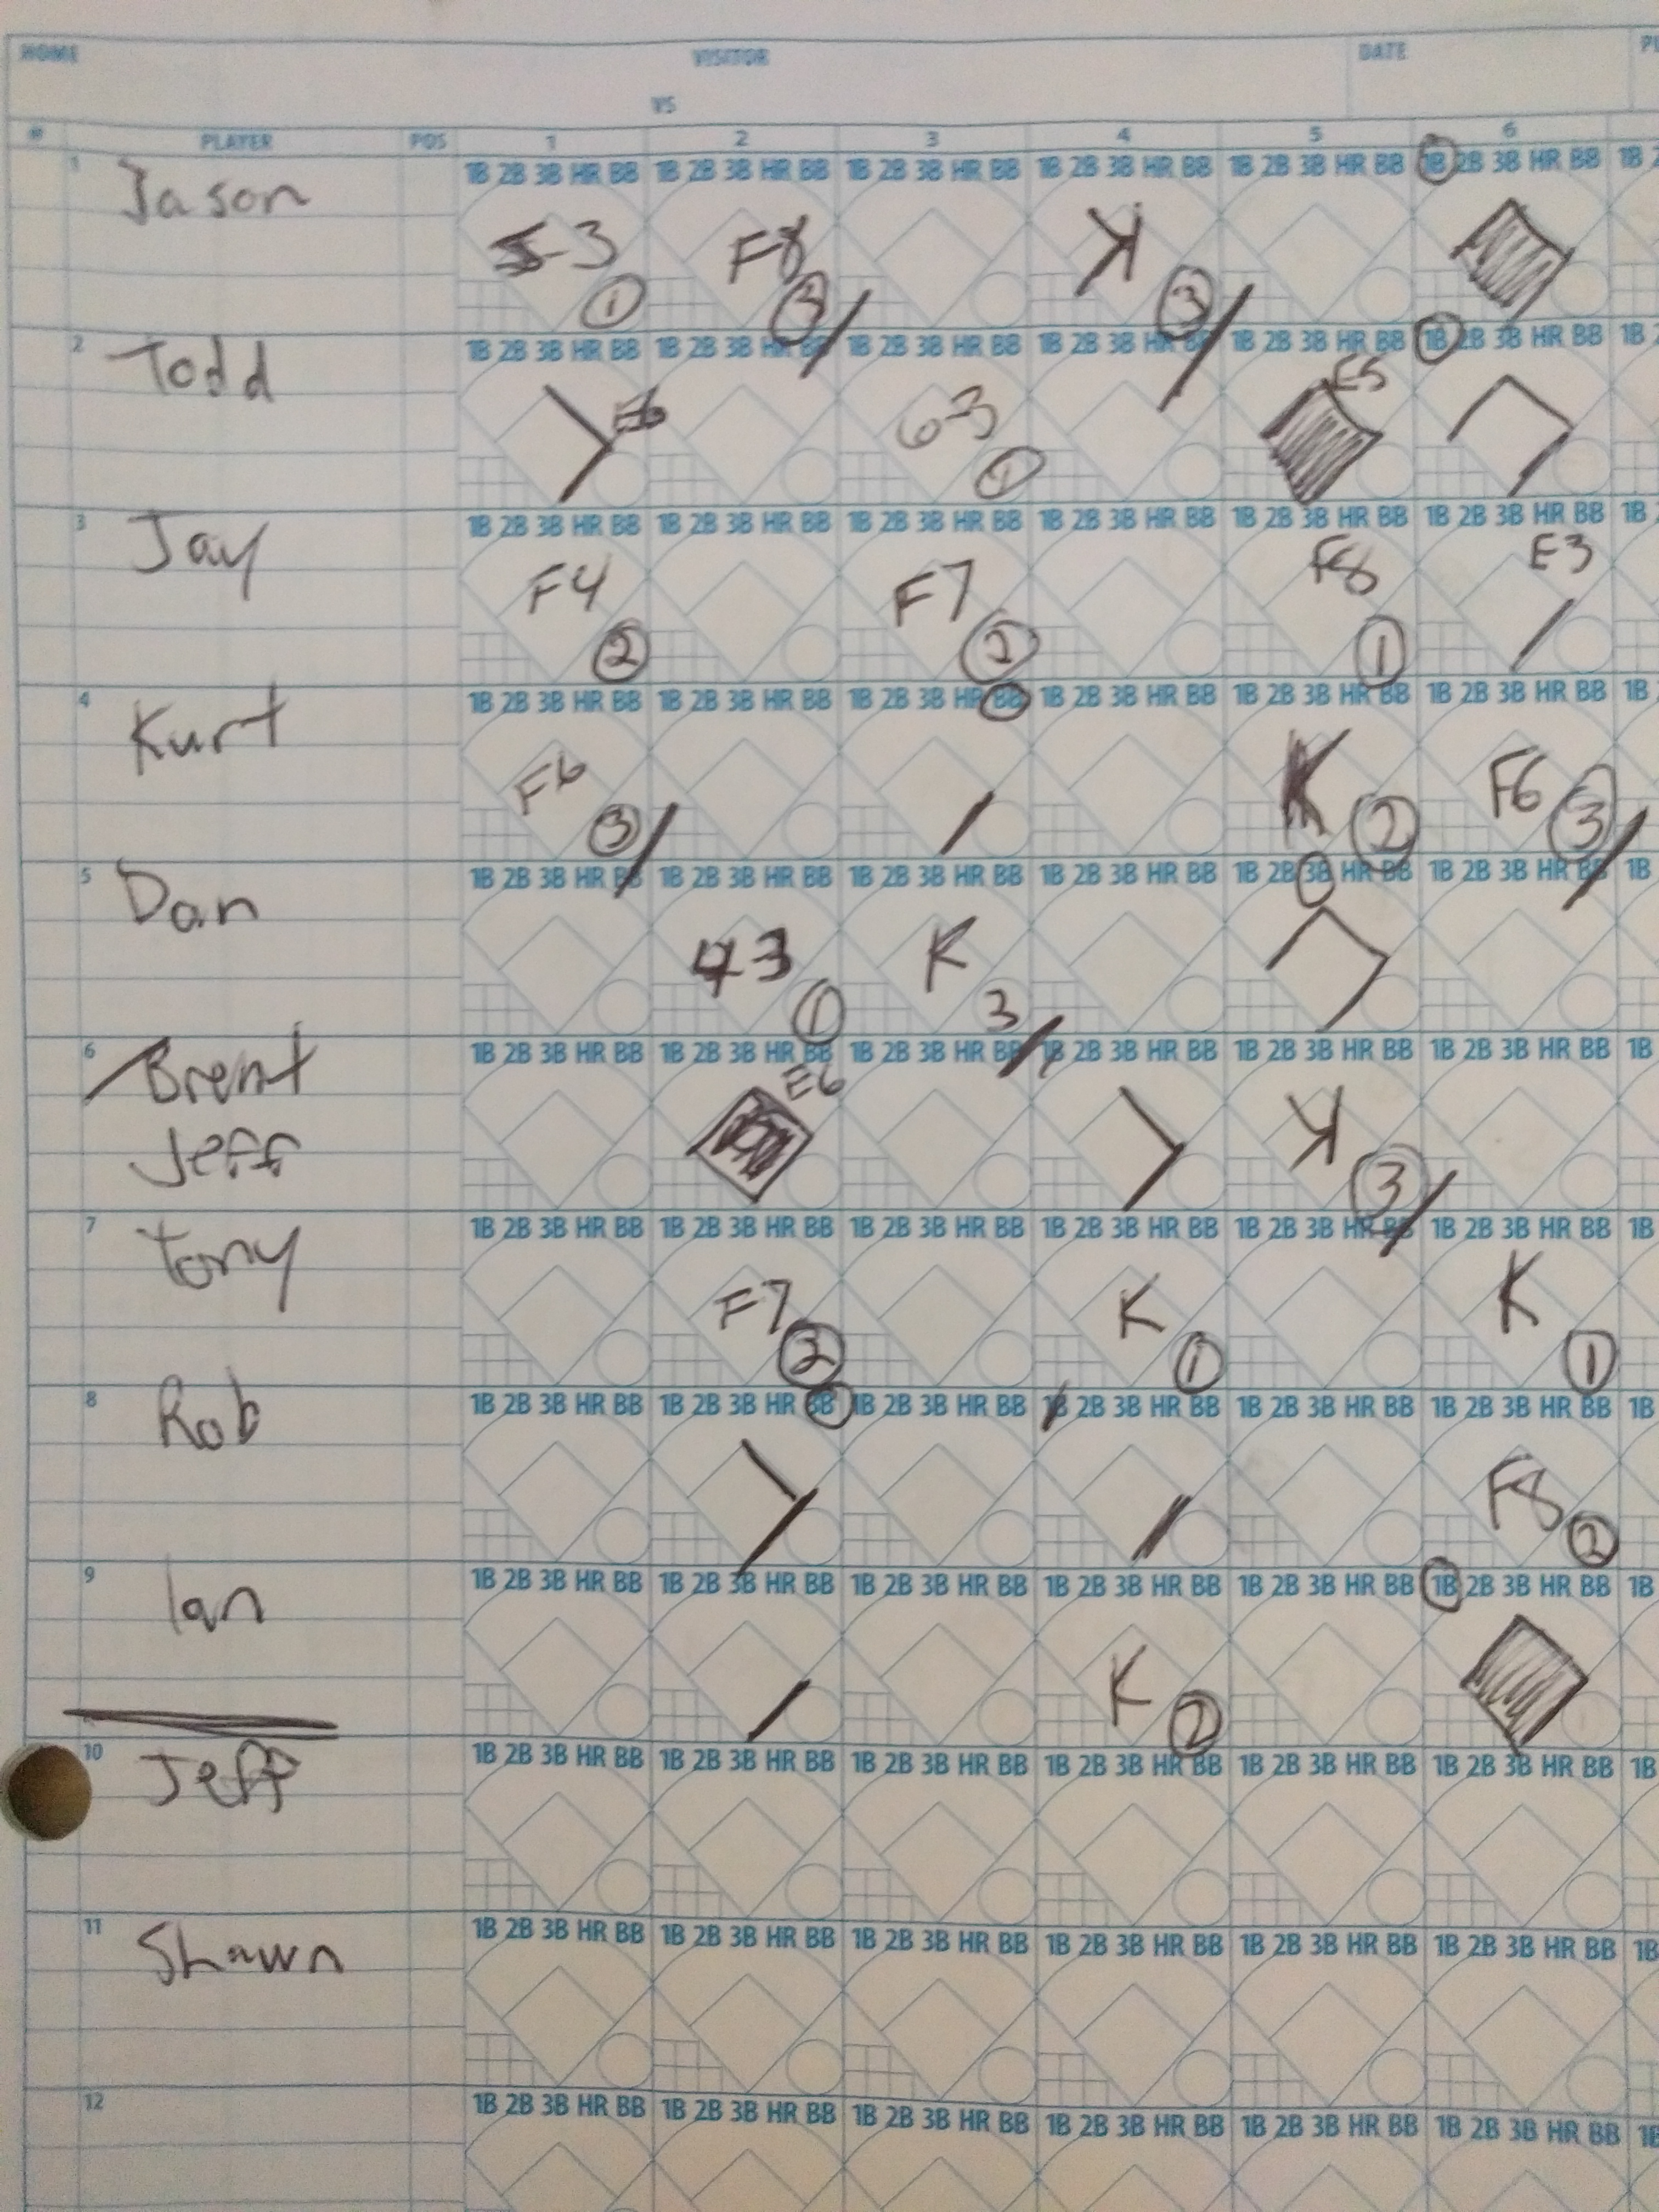 HOME VISITOR DATE
VS
# PLAYER POS 1 2 3 4 5 6
1 Jason 1B 2B 3B HR BB 1B 2B 3B HR BB 1B 2B 3B HR BB 1B 2B 3B HR BB 1B 2B 3B HR BB 1B 2B 3B HR BB 1B
5-3 F8 K
1 3 3
2 Todd 1B 2B 3B HR BB 1B 2B 3B HR BB 1B 2B 3B HR BB 1B 2B 3B HR BB 1B 2B 3B HR BB 1B 2B 3B HR BB 1B
E6 63 E5
1
3 Jay 1B 2B 3B HR BB 1B 2B 3B HR BB 1B 2B 3B HR BB 1B 2B 3B HR BB 1B 2B 3B HR BB 1B 2B 3B HR BB 1B
F4 F7 F8 E3
2 2 1
4 Kurt 1B 2B 3B HR BB 1B 2B 3B HR BB 1B 2B 3B HR BB 1B 2B 3B HR BB 1B 2B 3B HR BB 1B 2B 3B HR BB 1B
F6 K F6
3 2 3
5 Dan 1B 2B 3B HR BB 1B 2B 3B HR BB 1B 2B 3B HR BB 1B 2B 3B HR BB 1B 2B 3B HR BB 1B 2B 3B HR BB 1B
43 K
1 3
6 Brent 1B 2B 3B HR BB 1B 2B 3B HR BB 1B 2B 3B HR BB 1B 2B 3B HR BB 1B 2B 3B HR BB 1B 2B 3B HR BB 1B
E6
Jeff K
3
7 Tony 1B 2B 3B HR BB 1B 2B 3B HR BB 1B 2B 3B HR BB 1B 2B 3B HR BB 1B 2B 3B HR BB 1B 2B 3B HR BB 1B
F7 K K
2 1 1
8 Rob 1B 2B 3B HR BB 1B 2B 3B HR BB 1B 2B 3B HR BB 1B 2B 3B HR BB 1B 2B 3B HR BB 1B 2B 3B HR BB 1B
F8
2
9 Ian 1B 2B 3B HR BB 1B 2B 3B HR BB 1B 2B 3B HR BB 1B 2B 3B HR BB 1B 2B 3B HR BB 1B 2B 3B HR BB 1B
K
2
10 Jeff 1B 2B 3B HR BB 1B 2B 3B HR BB 1B 2B 3B HR BB 1B 2B 3B HR BB 1B 2B 3B HR BB 1B 2B 3B HR BB 1B
11 Shawn 1B 2B 3B HR BB 1B 2B 3B HR BB 1B 2B 3B HR BB 1B 2B 3B HR BB 1B 2B 3B HR BB 1B 2B 3B HR BB 1B
12 1B 2B 3B HR BB 1B 2B 3B HR BB 1B 2B 3B HR BB 1B 2B 3B HR BB 1B 2B 3B HR BB 1B 2B 3B HR BB 1B